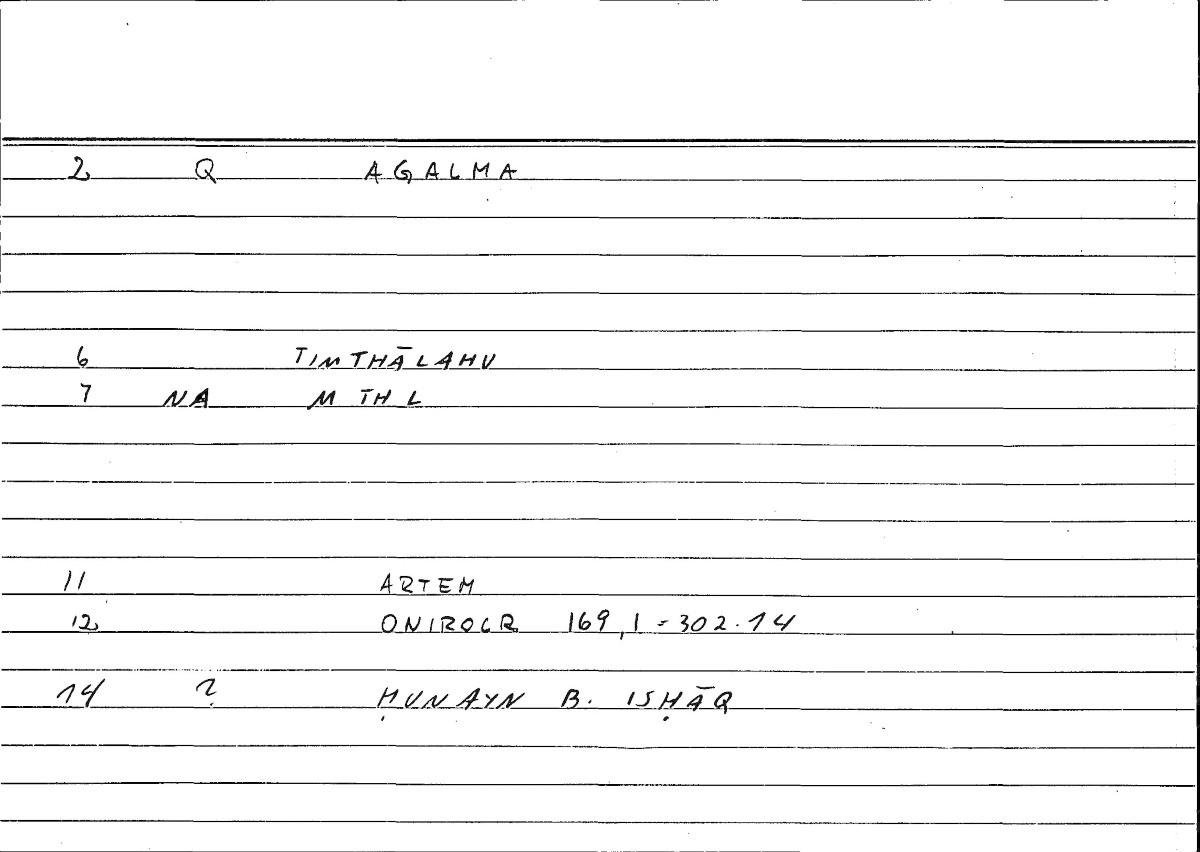 2 Q AGALMA
6 TIMTHĀLAHU
7 NA M TH L
11 ARTEM
12 ONIROCR 169,1 - 302.14
14 ? ḤUNAYN B. ISḤĀQ